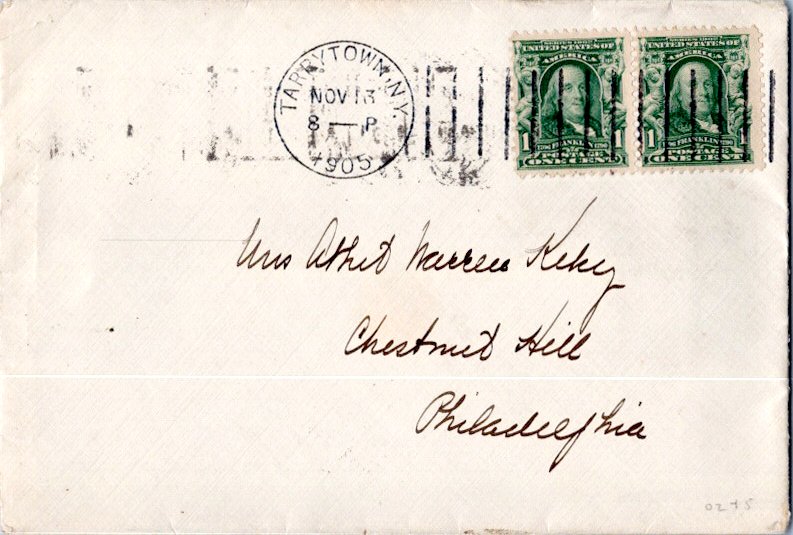 TARRYTOWN, N.Y.
NOV 13
8 — P
1905
SERIES 1902
UNITED STATES OF
AMERICA
1 1
1706 FRANKLIN 1790
POSTAGE
ONE CENT
SERIES 1902
UNITED STATES OF
AMERICA
1 1
1706 FRANKLIN 1790
POSTAGE
ONE CENT
Warren
Chestnut Hill
Philadelphia
0275